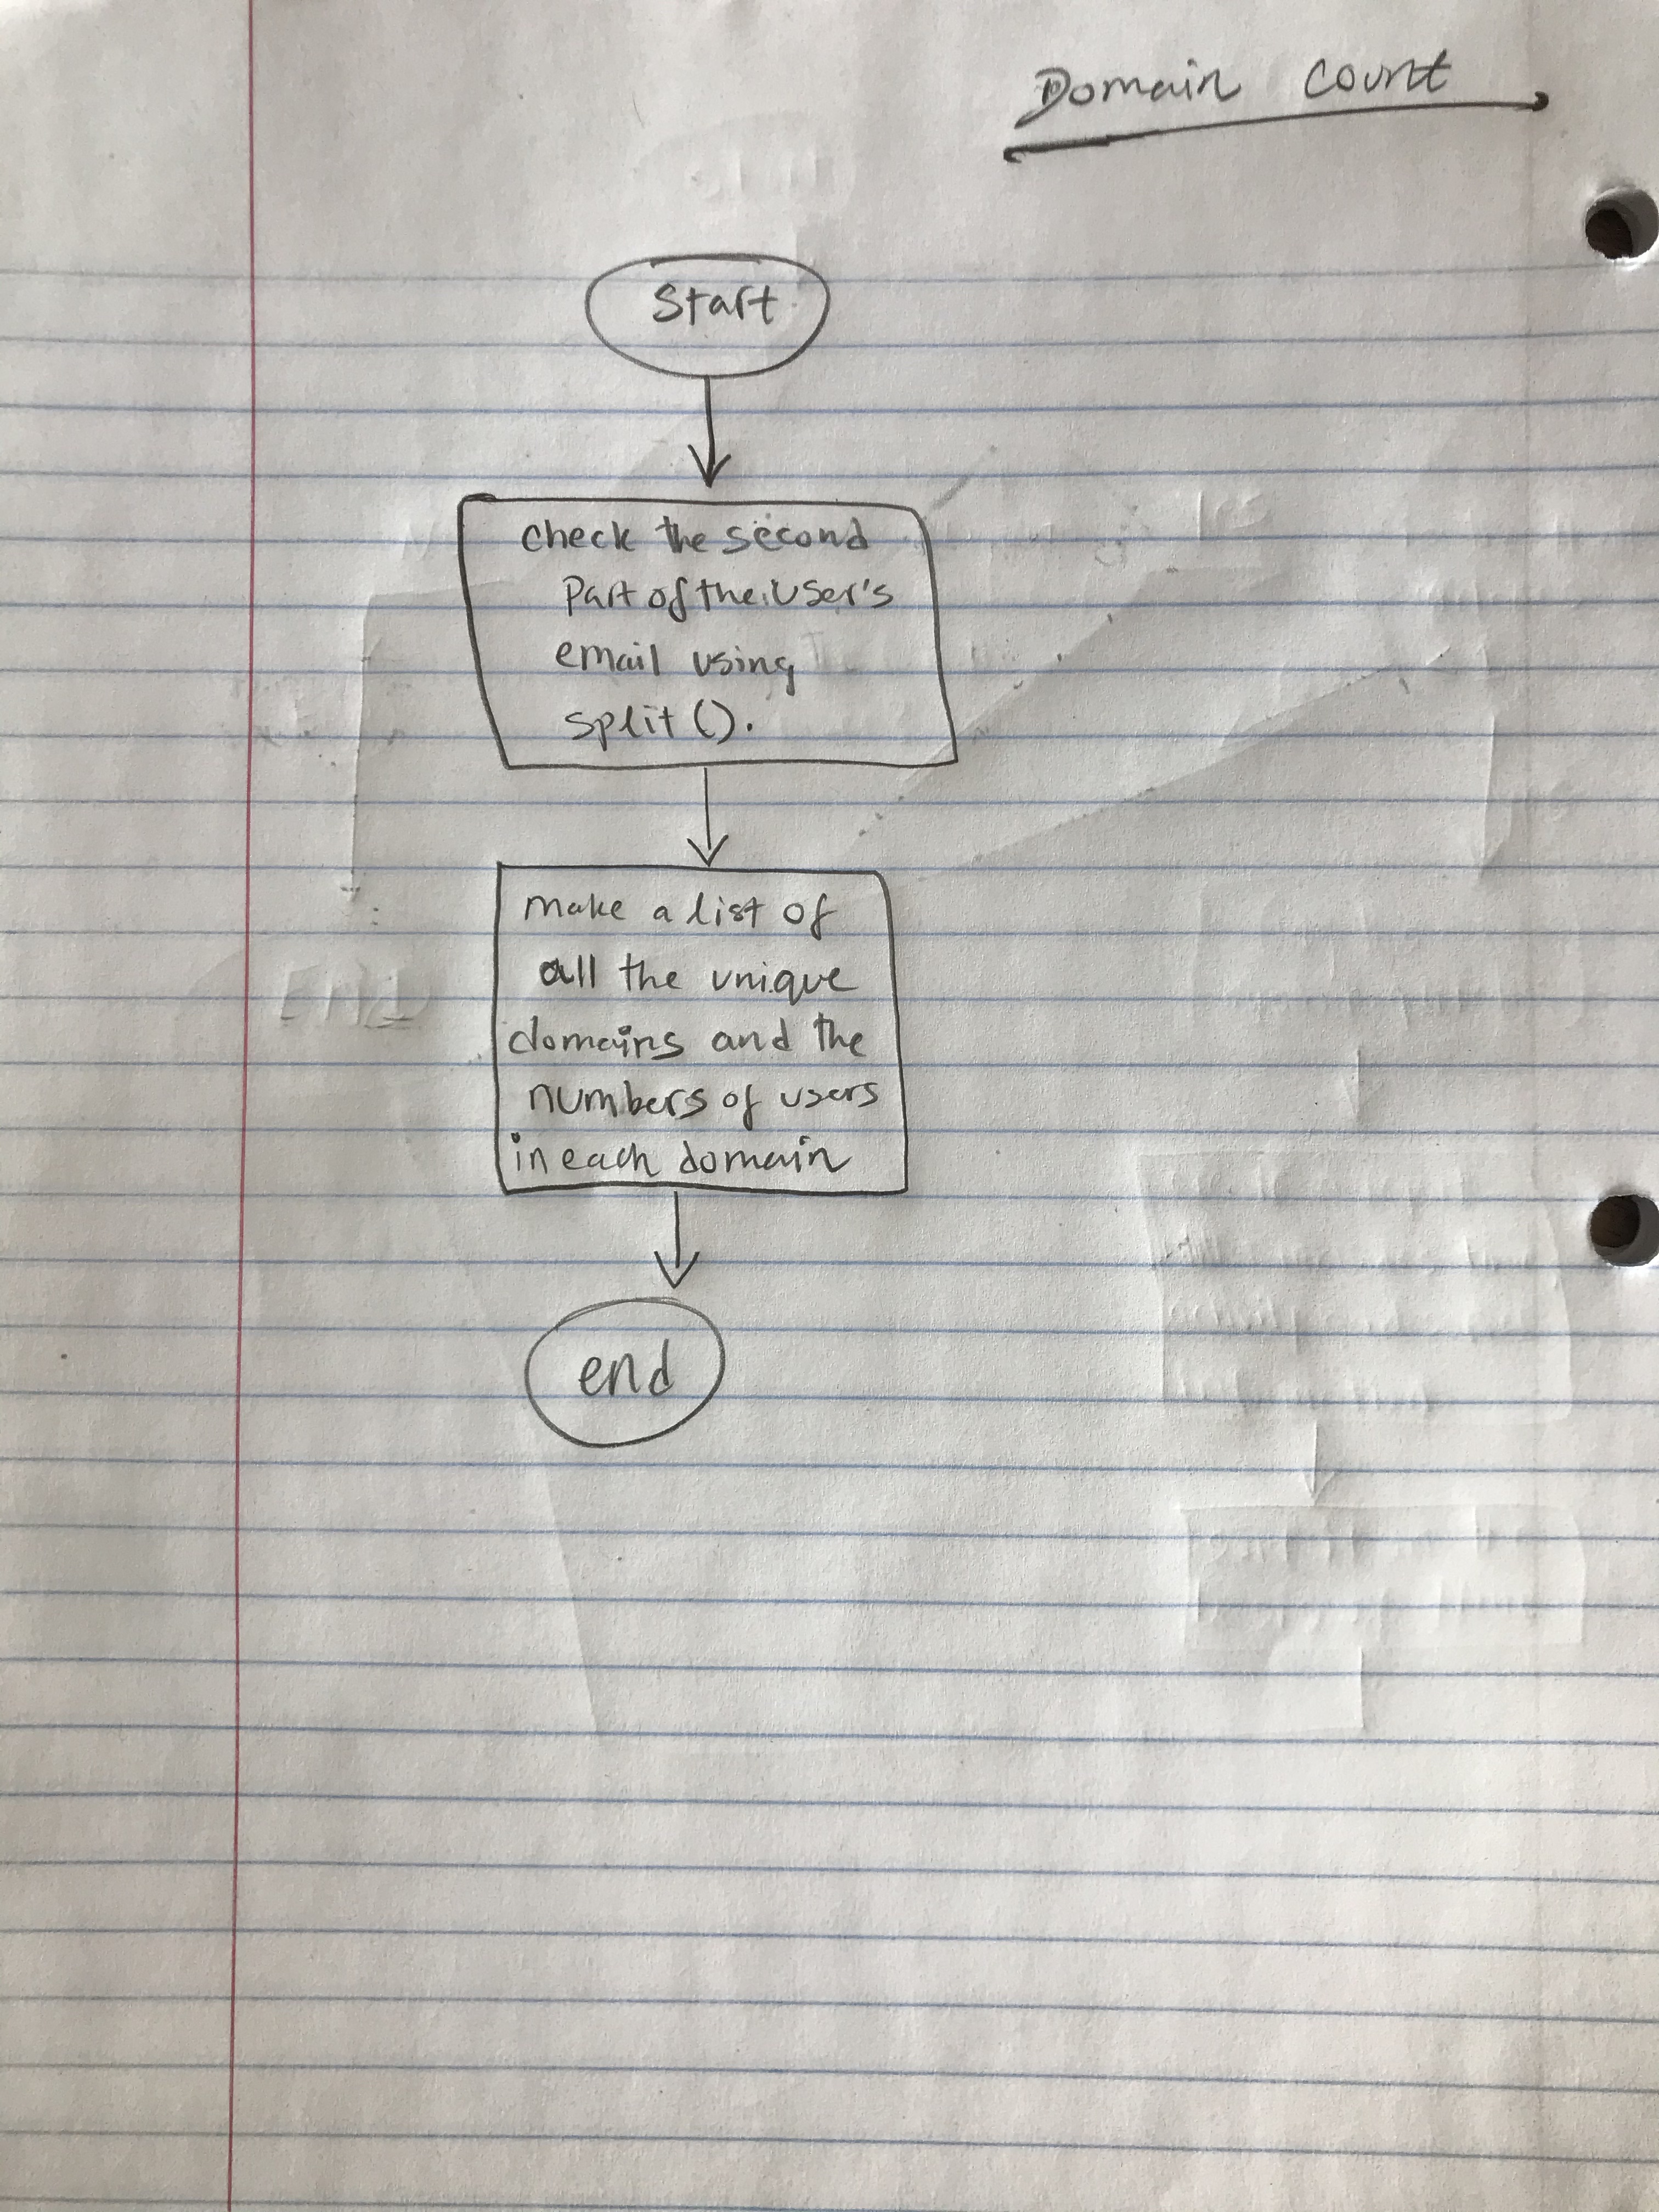 Domain count
start
check the second
Part of the User's
email using
split().
make a list of
all the unique
domains and the
numbers of users
in each domain
end